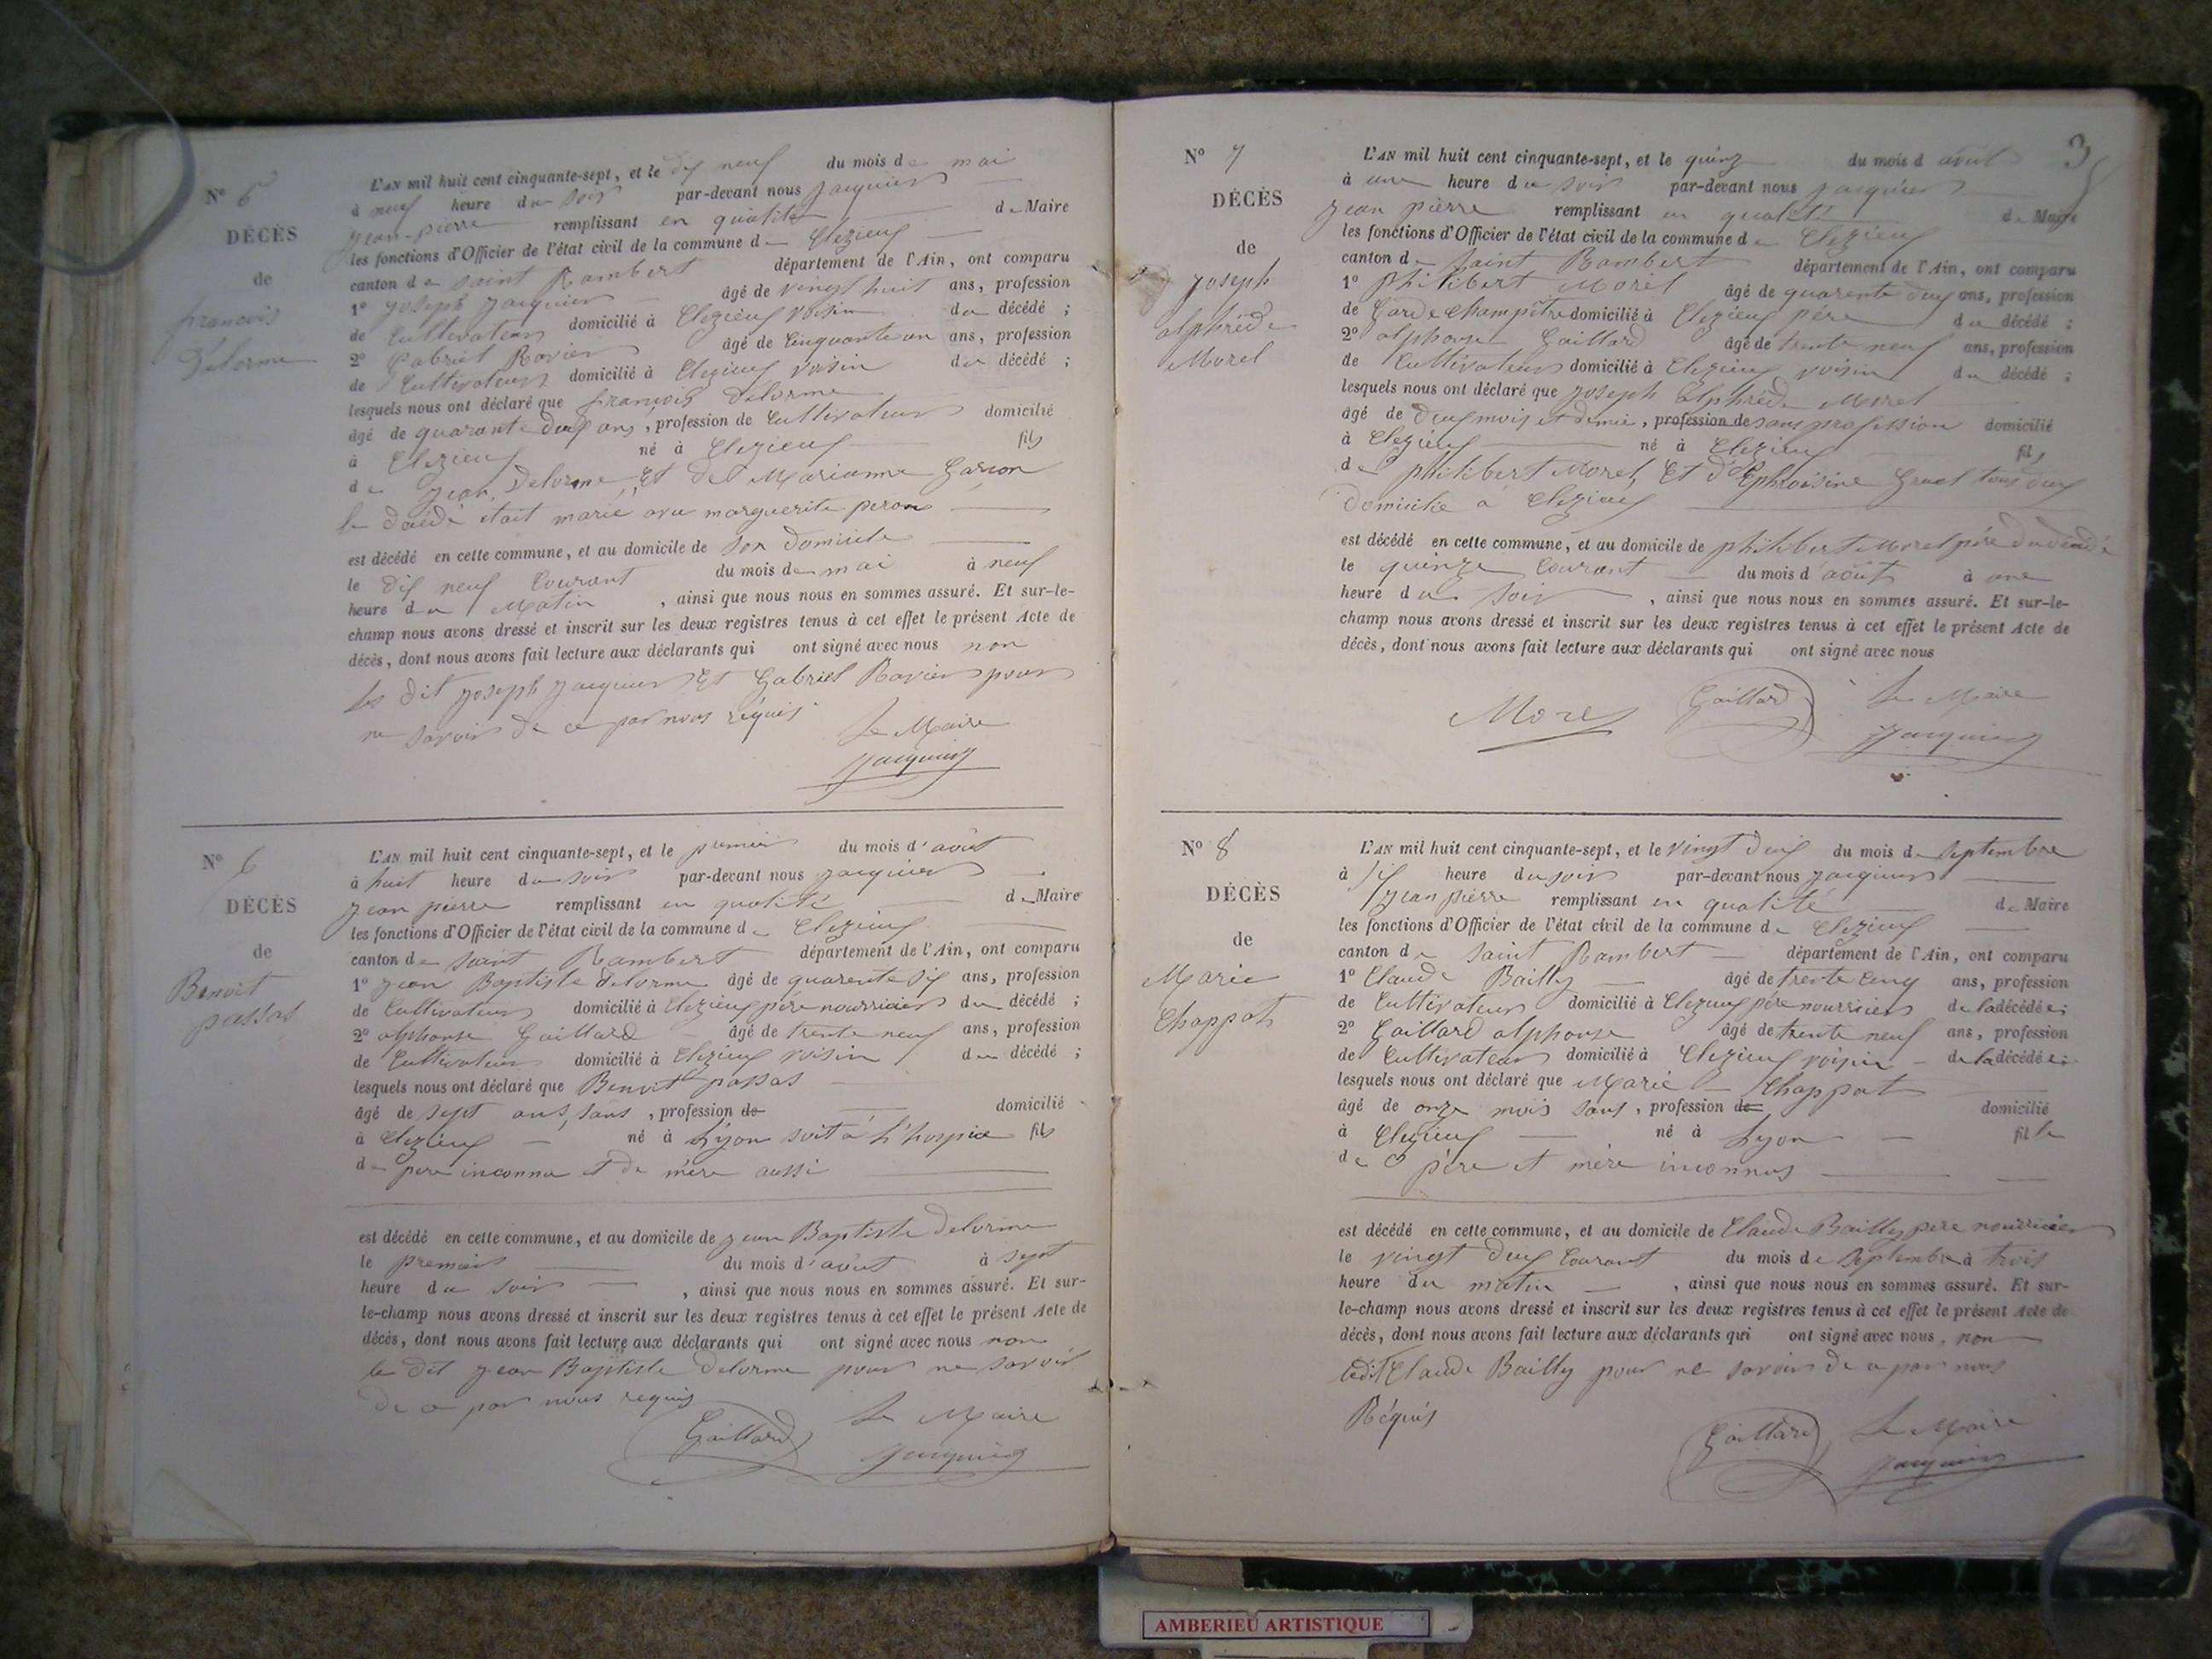 N° 5
DÉCÈS
de
francois
Delorme
L'AN mil huit cent cinquante-sept, et le dix neuf du mois de mai
à neuf heure du soir par-devant nous jacquier
jean-pierre remplissant en qualité de Maire
les fonctions d'Officier de l'état civil de la commune de Clezieux
canton de saint Rambert département de l'Ain, ont comparu
1° joseph jacquier âgé de vingt huit ans, profession
de Cultivateur domicilié à Clezieux voisin du décédé ;
2° Gabriel Ravier âgé de Cinquante un ans, profession
de Cultivateur domicilié à Clezieux voisin du décédé ;
lesquels nous ont déclaré que francois Delorme
âgé de quarante deux ans, profession de Cultivateur domicilié
à Clezieux né à Clezieux fils
de jean Delorme Et de Marianne Garson
le décédé était marié avec marguerite peron
est décédé en cette commune, et au domicile de son domicile
le dix neuf Courant du mois de mai à neuf
heure du Matin, ainsi que nous nous en sommes assuré. Et sur-le-
champ nous avons dressé et inscrit sur les deux registres tenus à cet effet le présent Acte de
décès, dont nous avons fait lecture aux déclarants qui ont signé avec nous non
les dit joseph jacquier Et Gabriel Ravier pour
ne savoir de ce par nous réquis
Le Maire
jacquier
N° 6
DÉCÈS
de
Benoit
passas
L'AN mil huit cent cinquante-sept, et le premier du mois d'août
à huit heure du soir par-devant nous jacquier
jean pierre remplissant en qualité de Maire
les fonctions d'Officier de l'état civil de la commune de Clezieux
canton de saint Rambert département de l'Ain, ont comparu
1° jean Baptiste Delorme âgé de quarente six ans, profession
de Cultivateur domicilié à Clezieux père nourricier du décédé ;
2° alphonse Gaillard âgé de trente neuf ans, profession
de Cultivateur domicilié à Clezieux voisin du décédé ;
lesquels nous ont déclaré que Benoit passas
âgé de sept ans, sans, profession de domicilié
à Clezieux né à Lyon soit à l'hospice fils
de pere inconnu et de mère aussi
est décédé en cette commune, et au domicile de jean Baptiste Delorme
le premier du mois d'août à sept
heure du soir, ainsi que nous nous en sommes assuré. Et sur-
le-champ nous avons dressé et inscrit sur les deux registres tenus à cet effet le présent Acte de
décès, dont nous avons fait lecture aux déclarants qui ont signé avec nous non
le dit jean Baptiste Delorme pour ne savoir
de ce par nous requis
Gaillard Le Maire
jacquier
3
N° 7
DÉCÈS
de
joseph
alphréde
Morel
L'AN mil huit cent cinquante-sept, et le quinze du mois d août
à une heure du soir par-devant nous jacquier
jean pierre remplissant en qualité de Maire
les fonctions d'Officier de l'état civil de la commune de Clezieux
canton de saint Rambert département de l'Ain, ont comparu
1° philibert Morel âgé de quarente deux ans, profession
de Garde Champêtre domicilié à Clezieux père du décédé ;
2° alphonse Gaillard âgé de trente neuf ans, profession
de Cultivateur domicilié à Clezieux voisin du décédé ;
lesquels nous ont déclaré que joseph alphréde Morel
âgé de deux mois et demie, profession de sans profession domicilié
à Clezieux né à Clezieux fils
de philibert Morel, Et d'Ephroisine tous deux
domicilié à Clezieux
est décédé en cette commune, et au domicile de philibert Morel père du décédé
le quinze Courant du mois d'août à une
heure du soir, ainsi que nous nous en sommes assuré. Et sur-le-
champ nous avons dressé et inscrit sur les deux registres tenus à cet effet le présent Acte de
décès, dont nous avons fait lecture aux déclarants qui ont signé avec nous
Morel Gaillard Le Maire
jacquier
N° 8
DÉCÈS
de
Marie
Chappat
L'AN mil huit cent cinquante-sept, et le vingt deux du mois de septembre
à six heure du soir par-devant nous jacquier
jean pierre remplissant en qualité de Maire
les fonctions d'Officier de l'état civil de la commune de Clezieux
canton de saint Rambert département de l'Ain, ont comparu
1° Claude Bailly âgé de trente cinq ans, profession
de Cultivateur domicilié à Clezieux père nourricier de la décédée ;
2° Gaillard alphonse âgé de trente neuf ans, profession
de Cultivateur domicilié à Clezieux voisin de la décédée ;
lesquels nous ont déclaré que Marie Chappat
âgé de onze mois sans, profession de domicilié
à Clezieux né à Lyon fille
de père et mère inconnus
est décédé en cette commune, et au domicile de Claude Bailly pere nourricier
le vingt deux Courant du mois de septembre à trois
heure du matin, ainsi que nous nous en sommes assuré. Et sur-
le-champ nous avons dressé et inscrit sur les deux registres tenus à cet effet le présent Acte de
décès, dont nous avons fait lecture aux déclarants qui ont signé avec nous, non
ledit Claude Bailly pour ne savoir de ce par nous
Réquis
Gaillard Le Maire
jacquier
AMBERIEU ARTISTIQUE